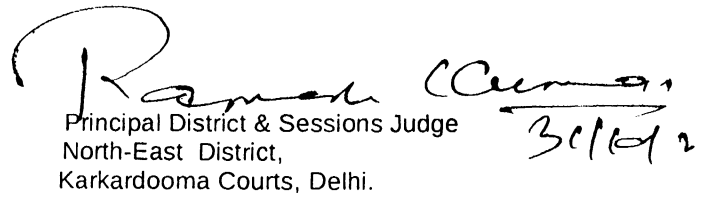 Ramesh Kumar
Principal District & Sessions Judge
North-East District,
Karkardooma Courts, Delhi.